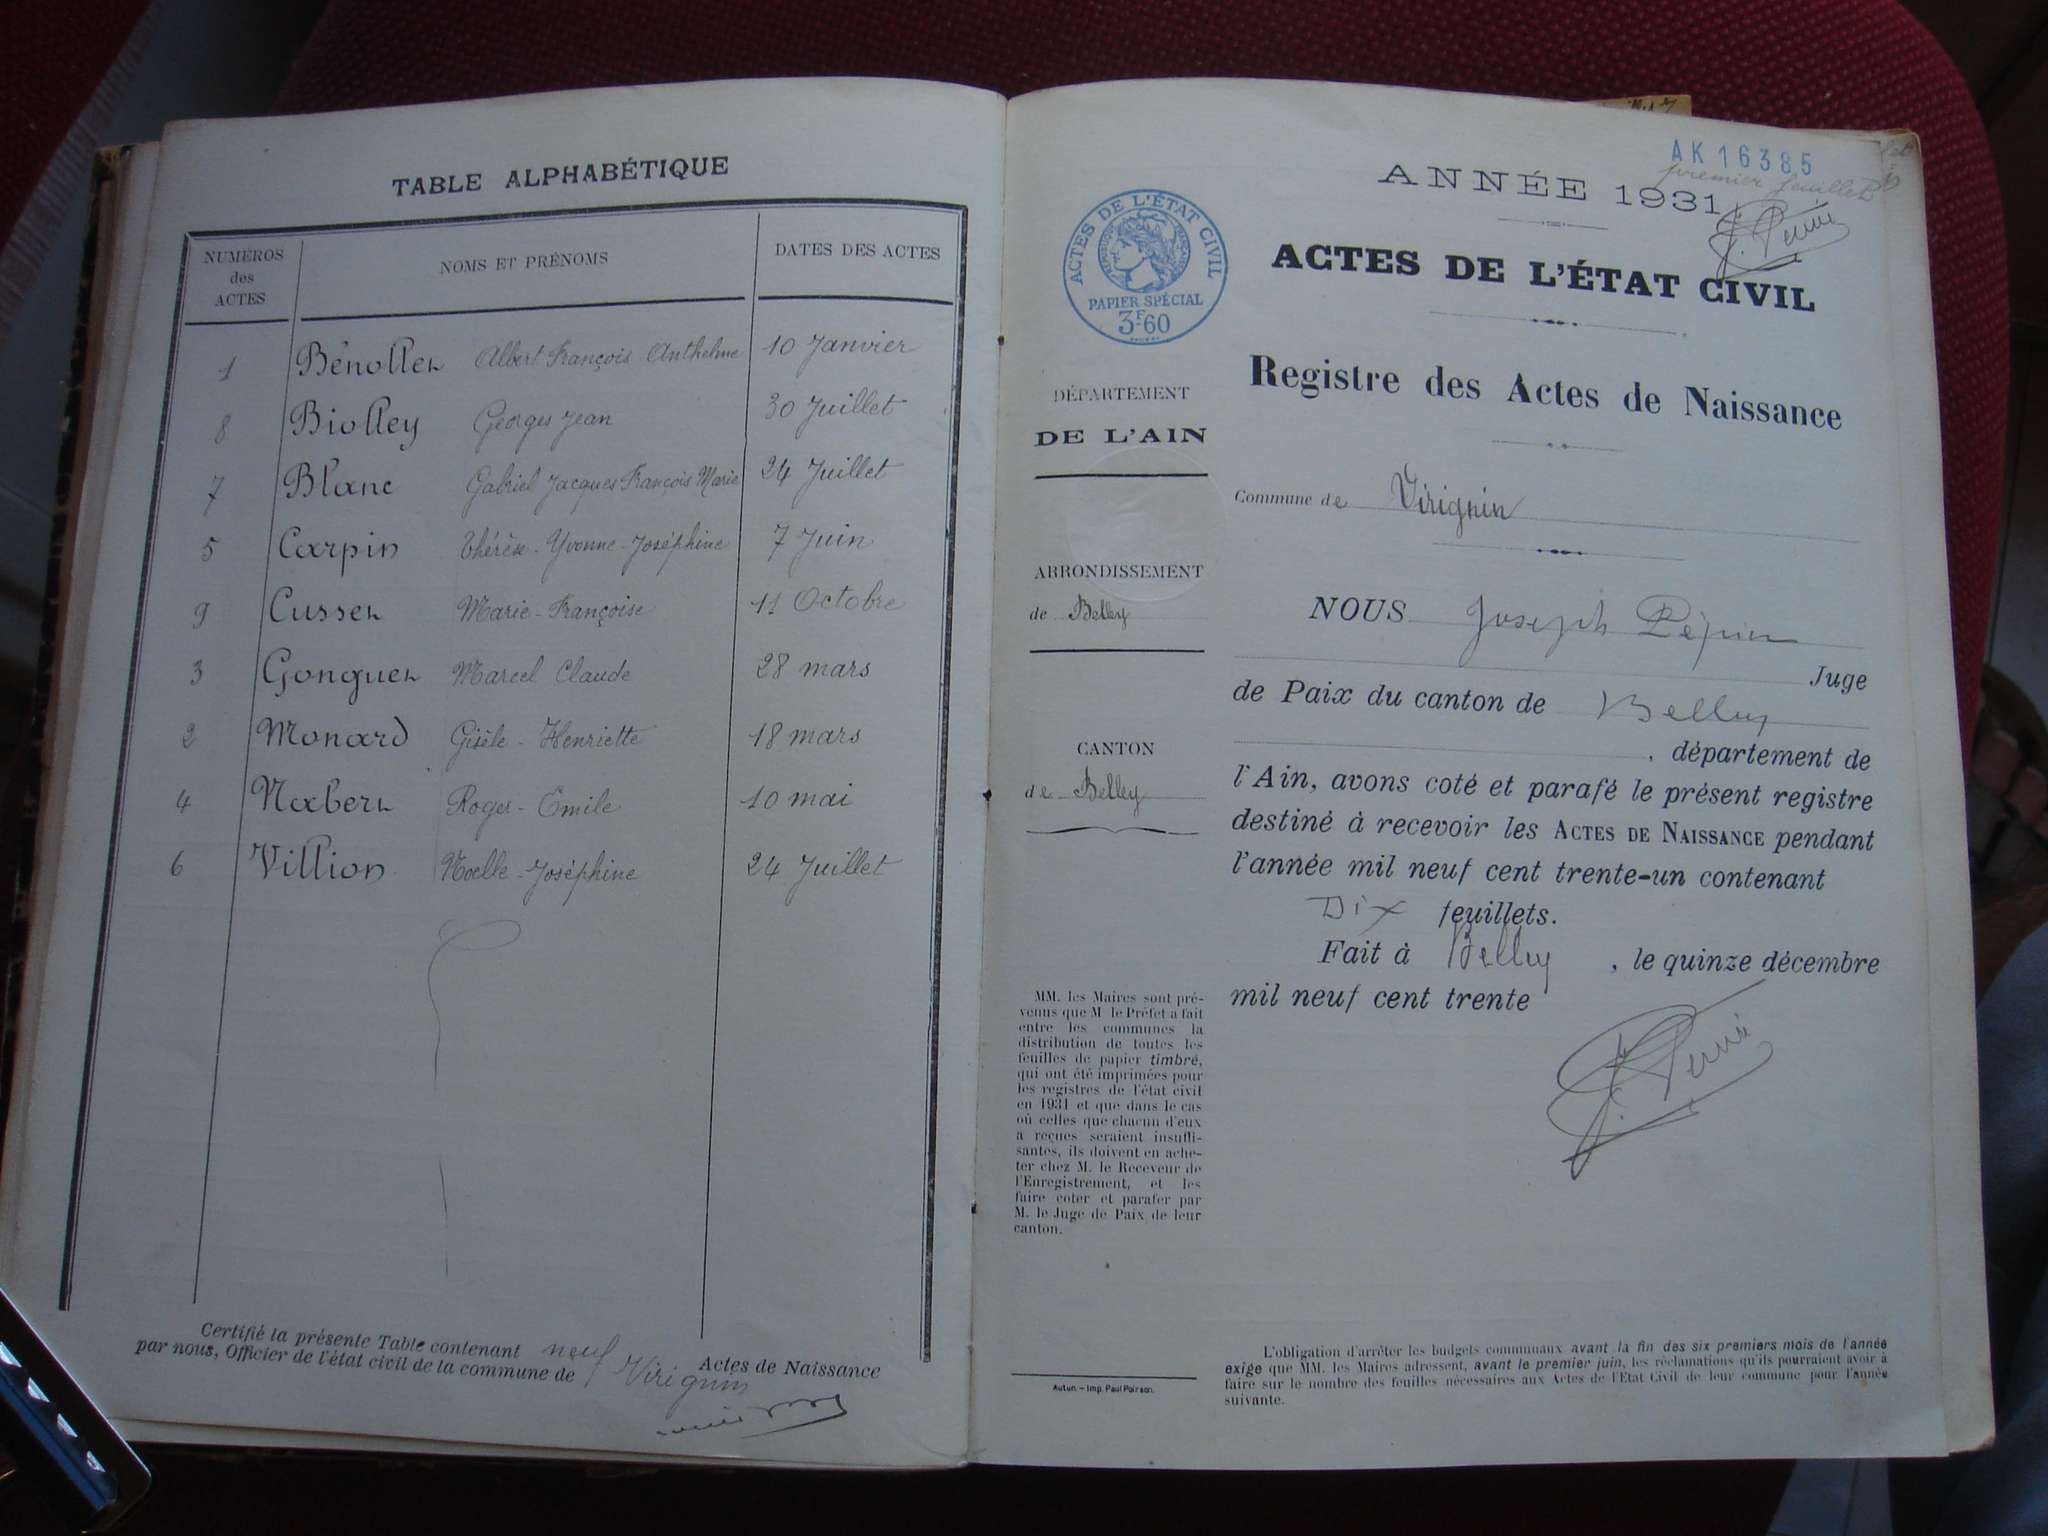 TABLE ALPHABÉTIQUE
NUMÉROS des ACTES
NOMS ET PRÉNOMS
DATES DES ACTES
1 Bénoller Albert François Anthelme 10 Janvier
8 Biolley Georges Jean 30 Juillet
7 Blanc Gabriel Jacques François Marie 24 Juillet
5 Carpin Thérèse-Yvonne-Joséphine 7 Juin
9 Cusser Marie-Françoise 11 Octobre
3 Gonguer Marcel Claude 28 mars
2 Monard Gisèle-Henriette 18 mars
4 Naberr Roger-Emile 10 mai
6 Villion Noelle-Joséphine 24 Juillet
Certifié la présente Table contenant neuf Actes de Naissance
par nous, Officier de l'état civil de la commune de Virignin
AK 16385
premier feuillet
ANNÉE 1931
ACTES DE L'ÉTAT CIVIL
RÉPUBLIQUE FRANÇAISE
PAPIER SPÉCIAL
3F60
ACTES DE L'ÉTAT CIVIL
Registre des Actes de Naissance
DÉPARTEMENT
DE L'AIN
Commune de Virignin
ARRONDISSEMENT
de Belley
CANTON
de Belley
NOUS Joseph Pépin
Juge
de Paix du canton de Belley
, département de
l'Ain, avons coté et parafé le présent registre
destiné à recevoir les ACTES DE NAISSANCE pendant
l'année mil neuf cent trente-un contenant
Dix feuillets.
Fait à Belley, le quinze décembre
mil neuf cent trente
MM. les Maires sont pré-
venus que M le Préfet a fait
entre les communes la
distribution de toutes les
feuilles de papier timbré,
qui ont été imprimées pour
les registres de l'état civil
en 1931 et que dans le cas
où celles que chacun d'eux
a reçues seraient insuffi-
santes, ils doivent en ache-
ter chez M. le Receveur de
l'Enregistrement, et les
faire coter et parafer par
M. le Juge de Paix de leur
canton.
Autun. — Imp. Paul Poirson.
L'obligation d'arrêter les budgets communaux avant la fin des six premiers mois de l'année
exige que MM. les Maires adressent, avant le premier juin, les réclamations qu'ils pourraient avoir à
faire sur le nombre des feuilles nécessaires aux Actes de l'Etat Civil de leur commune pour l'année
suivante.